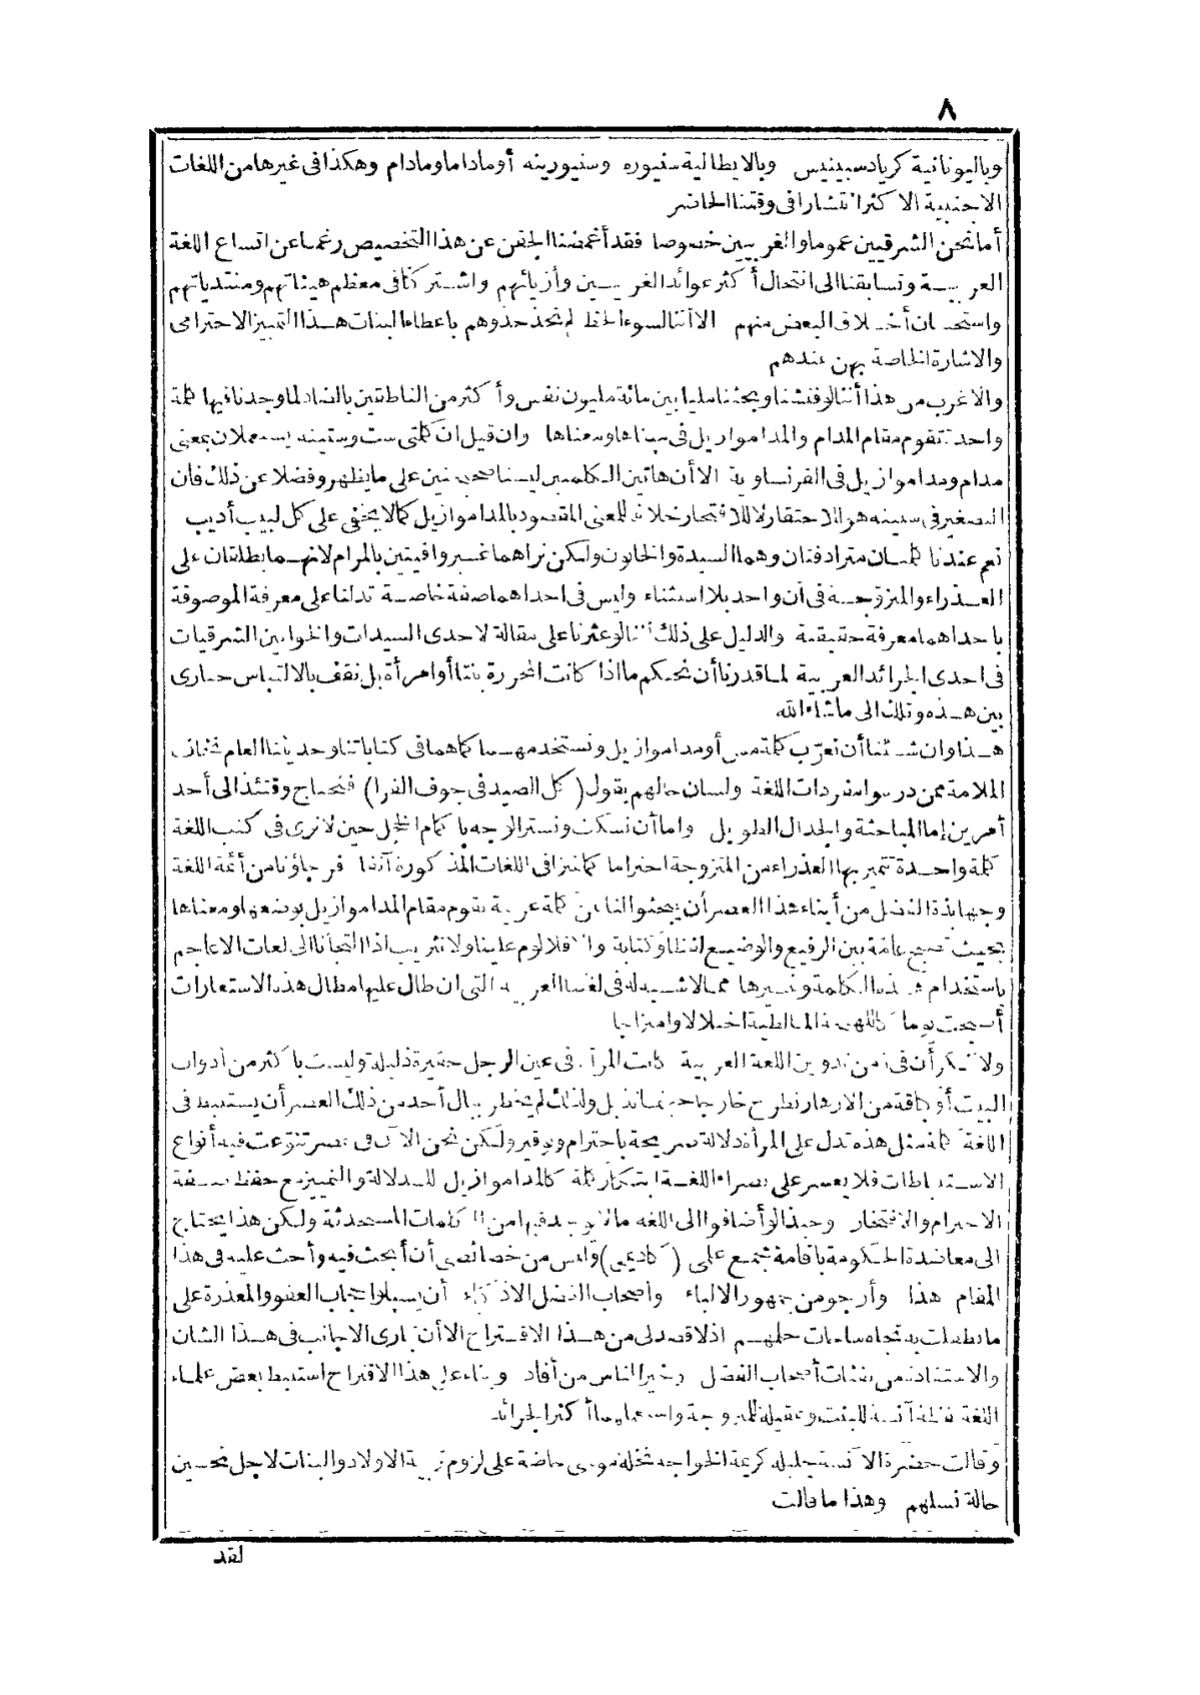 ٨
وباليونانية كرياد سبينيس وبالايطالية سنيوره وسنيورينه أو ماداما ومادام وهكذا فى غيرها من اللغات
الاجنبية الاكثر انتشارا فى وقتنا الحاضر
أما نحن الشرقيين عموما والغربيين خصوصا فقد أغمضنا الجفن عن هذا التخصيص رغما عن اتساع اللغة
العربيـة وتسابقنا الى انتحال أكثر عوائد الغربيـين وأزيائهم واشـتركنا فى معظم هيئاتهم ومنتدياتهم
واستحسان أخـلاق البعض منهم الا أننا لسوء الحظ لم نحذ حذوهم باعطاء البنات هـذا التمييز الاحترامى
والاشارة الخاصة بهن عندهم
والاغرب من هذا أننا لو فتشنا وبحثنا مليا بين مائة مليون نفس وأكثر من الناطقين بالضاد لما وجدنا فيها كلمة
واحدة تقوم مقام المدام والمداموازيل فى مبناها ومعناها وان قيل ان كلمتى ست وستيته يستعملان بمعنى
مدام ومداموازيل فى الفرنساوية الا أن هاتين الـكلمتين ليستا صحيحتين على ما يظهر وفضلا عن ذلك فان
التصغير فى ستيته هو للاحتقار لا للافتخار خلافه للمعنى المقصود بالمداموازيل كما لا يخفى على كل لبيب أديب
نعم عندنا كلمتـان مترادفتان وهما السيدة والخاتون ولكن نراهما غـير وافيتين بالمرام لانهـما يطلقتان على
العـذراء والمتزوجـة فى آن واحد بلا استثناء وليس فى احداهما صفة خاصـة تدلنا على معرفة الموصوفة
باحداهما معرفة حقيقية والدليل على ذلك أننا لو عثرنا على مقالة لاحدى السيدات والخواتين الشرقيات
فى احدى الجرائد العربية لما قدرنا أن نحكم ما اذا كانت المحررة بنتا أو امرأة بل نقف بالالتباس حيارى
بين هـذه وتلك الى ما شاء الله
هـذا وان شـئنا أن نعرّب كلمة مس أو مداموازيل ونستخدمهـما كما هما فى كتاباتنا وحديثنا العام نخاف
الملامة ممن درسوا مفردات اللغة ولسان حالهم يقول (كل الصيد فى جوف الفرا) فنحتاج وقتئذ الى أحد
أمرين إما المباحثة والجدال الطويل واما أن نسكت ونستر الوجه باكمام الخجل حين لا نرى فى كتب اللغة
كلمة واحـدة تتميز بها العذراء من المتزوجة احتراما كما نرى فى اللغات المذكورة آنفا فرجاؤنا من أئمة اللغة
وجهابذة الفضل من أبناء هذا العصر أن يبحثوا لنا عن كلمة عربية تقوم مقام المداموازيل بوضعها ومعناها
بحيث تصبح عامة بين الرفيع والوضيـع لفظا وكتابة والا فلا لوم علينا ولا تثريب اذا التجأنا الى لغات الاعاجم
باستخدام هـذه الـكلمة وغـيرها ممـا لا شبيه له فى لغتنا العربية التى ان طال عليها مطال هذه الاستعارات
أصبحت يوما كاللهجة المالطية اختلالا وامتزاجا
ولا ننكر أن فى زمن تدوين اللغة العربية كانت المرأة فى عين الرجل حقيرة ذليلة وليست باكثر من أدوات
البيت أو كباقة من الازهار تطرح خارجا حينمـا تذبل ولذلك لم يخطر ببال أحد من ذلك العصر أن يستنبط فى
اللغة كلمة مثل هذه تدل على المرأة دلالة صريحة باحترام وتوقير ولكن نحن الآن فى عصر تنوعت فيه أنواع
الاسـتنباطات فلا يعسر على نصراء اللغـة ابتكار كلمة كالمداموازيل للـدلالة والتمييز مع حفظ صـفة
الاحترام والافتخار وحبذا لو أضافوا الى اللغه مالا يوجد فيها من الكلمات المستحدثة ولكن هذا يحتاج
الى معاضدة الحكومة باقامة مجتمع علمى (اكاديمى) وليس من خصائصى أن أبحث فيه وأحث عليه فى هذا
المقام هذا وأرجو من جمهور الالباء وأصحاب الفضل الاذكياء أن يسبلوا حجاب العفو والمعذرة على
ما تطفلت به تجاه ساحات حلمهـم اذ لا قصد لى من هـذا الاقـتراح الا أن نجارى الاجانب فى هـذا الشان
والاستفادة من نفثات أصحاب الفضل وخير الناس من أفاد وبناء على هذا الاقتراح استنبط بعض علمـاء
اللغة لفظة آنسة للبنت وعقيلة للمتزوجة واستعملهما أكثر الجرائد
وقالت حضرة الآنسة جليله كريمة الخواجه نخله موسى حاضة على لزوم تربية الاولاد والبنات لاجل تحسـين
حالة نسلهم وهذا ما قالت
لقد